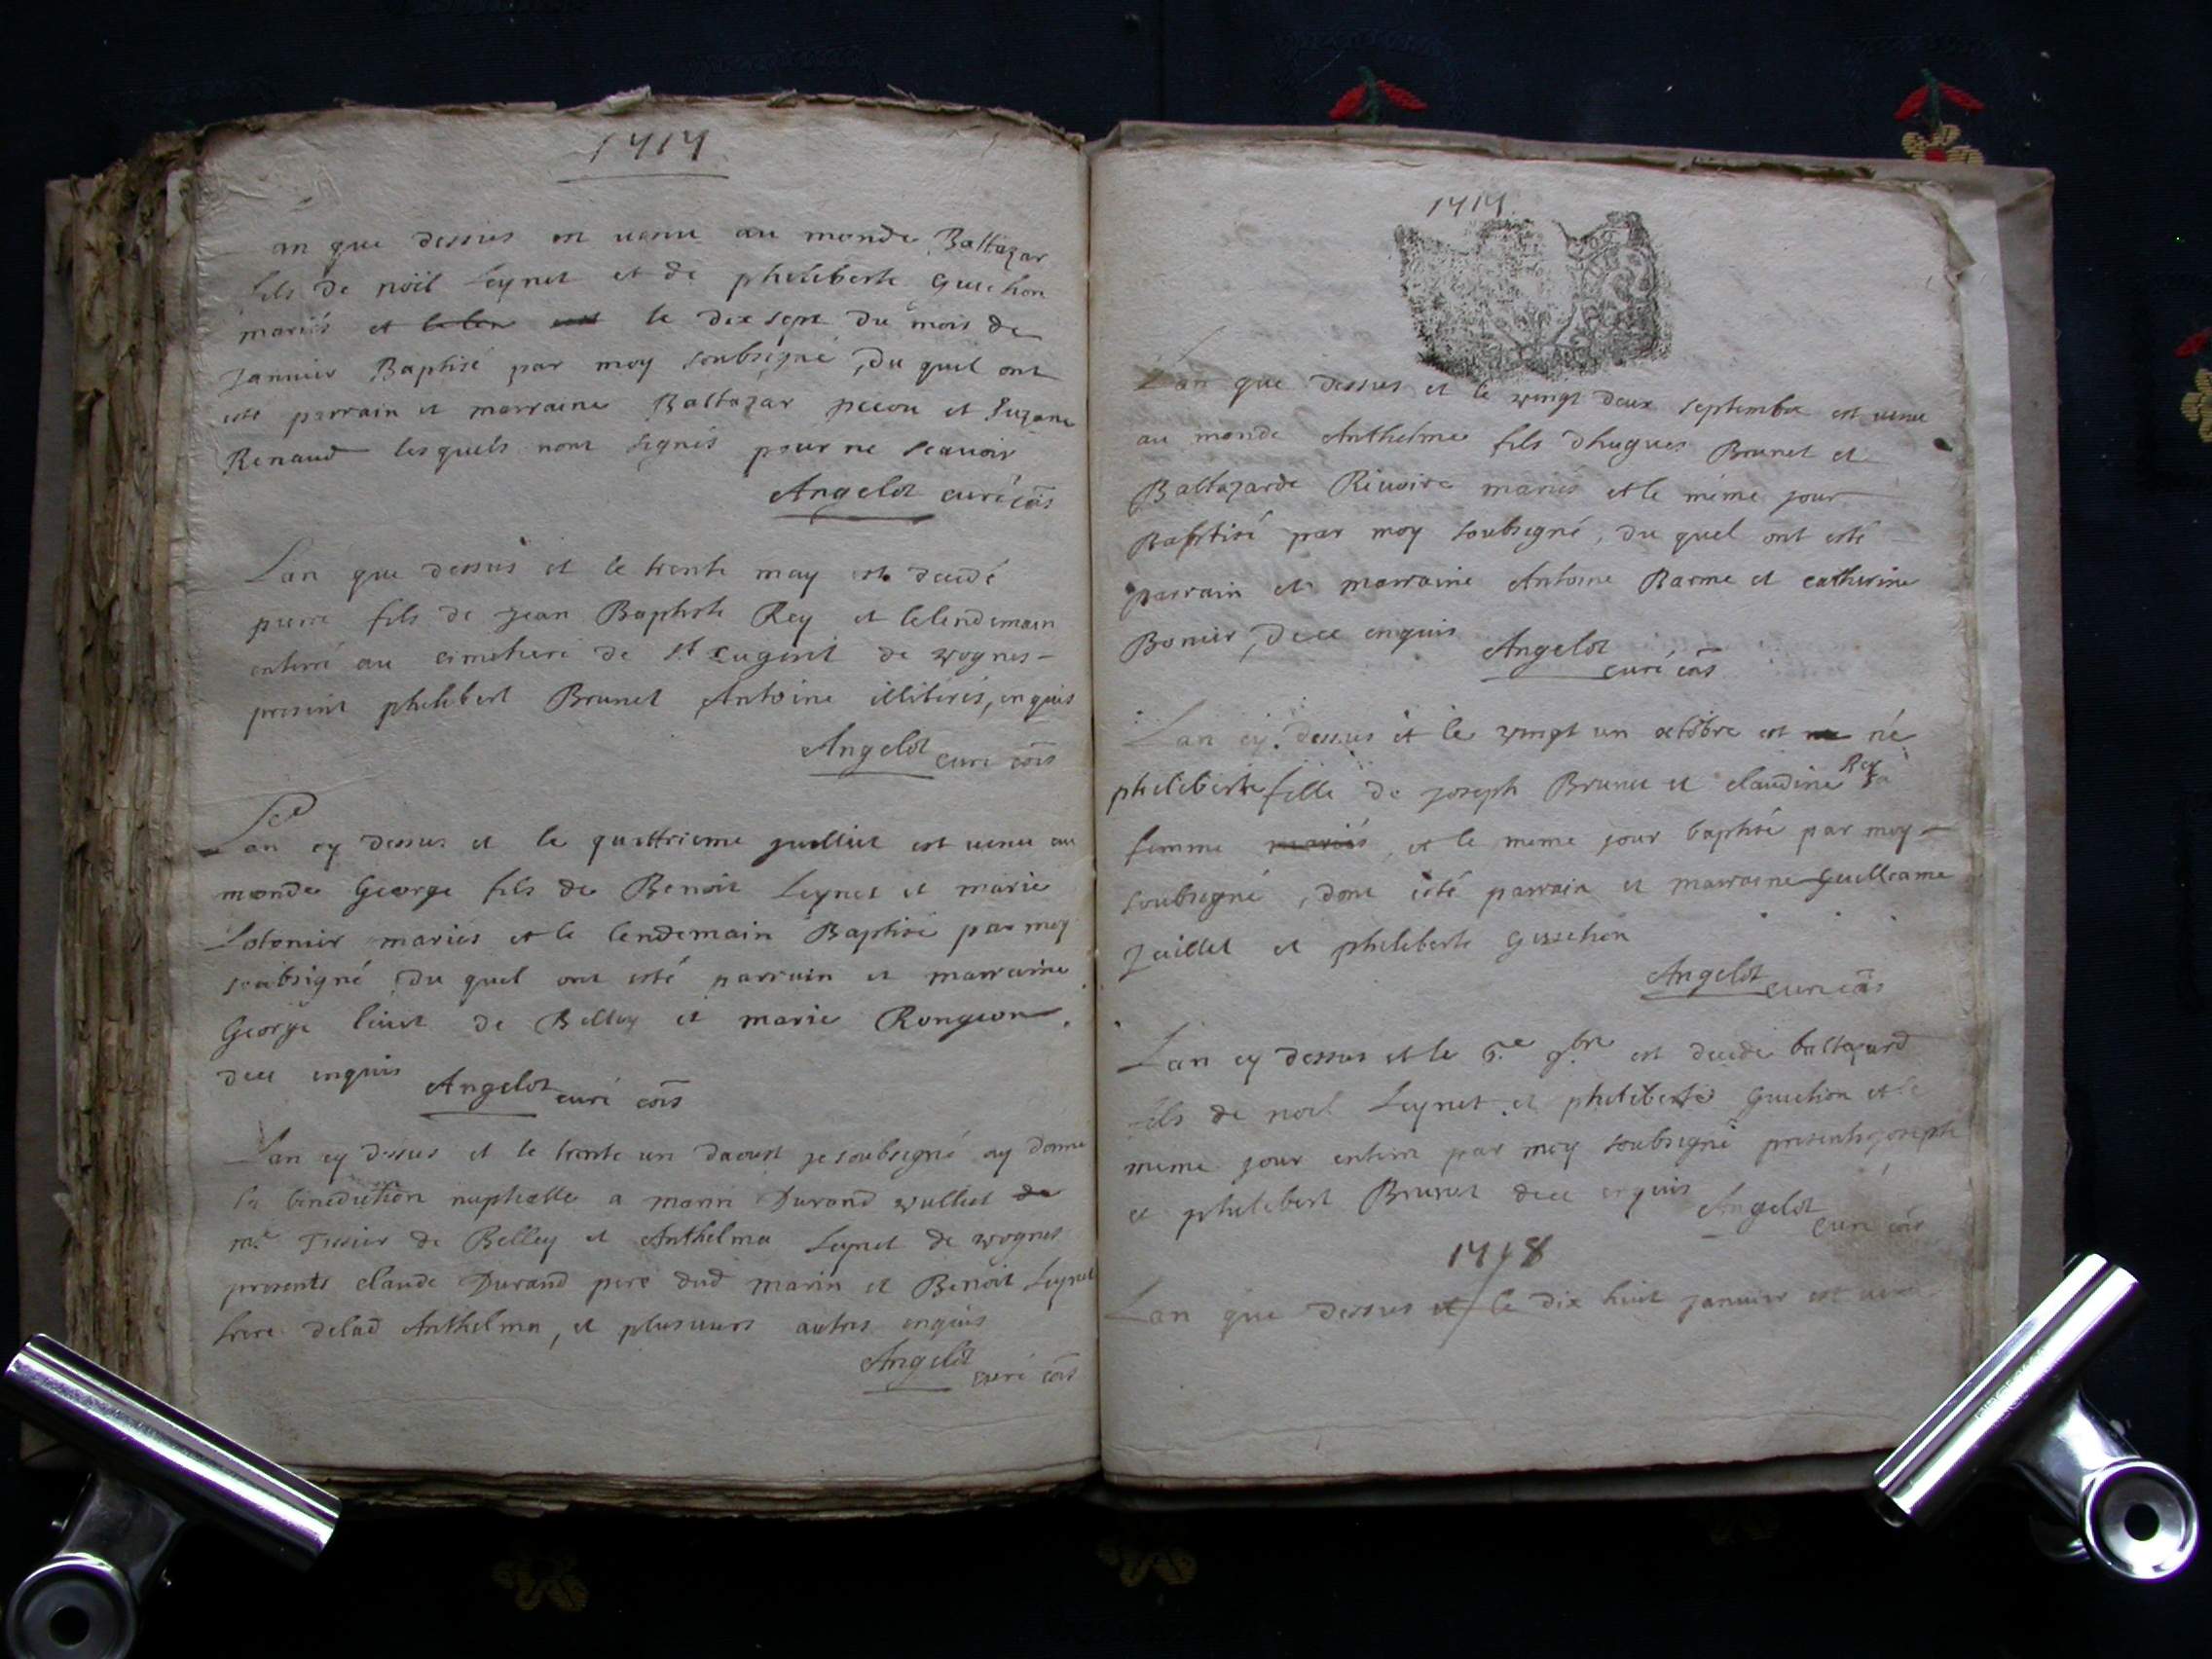 1717
an que dessus est venu au monde Baltazar
fils de noël Leynet et de pheliberte Guichon
mariés et le dix sept du mois de
Janvier Baptisé par moy soubsigné, du quel ont
esté parrain et marraine Baltazar pecou et Suzane
Renaud lesquels nont signés pour ne scavoir
Angelot curé cõis
Lan que dessus et le trente may est decedé
pierre fils de Jean Baptiste Rey et lelendemain
enterré au cimetiere de st Eugent de wognes
present philibert Brunet Antoine illiterés, enquis
Angelot curé cõis
Lan cy dessus et le quattrieme juilliet est venu au
monde George fils de Benoit Leynet et marie
Lotonier mariés et le lendemain Baptisé par moy
soubsigné du quel ont esté parrain et marraine
George de Belley et marie Rongeon
dece enquis Angelot curé cõis
Lan cy dessus et le trente un daoust je soubsigné ay donné
la benediction nuptialle a marin Durand wulliet de
me Tissier de Belley et Anthelma Leynet de wognes
presents claude Durand pere dud marin et Benoit Leynet
frere delad Anthelma, et plusieurs autres enquis
Angelot curé cõis
1717
Lan que dessus et le vingt deux septembre est venu
au monde Anthelme fils dhugues Brunet et
Baltazarde Rivoire mariés et le méme jour
Baptisé par moy soubsigné, du quel ont esté
parrain et marraine Antoine Barme et catherine
Bonier, dece enquis Angelot
curé cõis
Lan cy dessus et le vingt un octobre est né
pheliberte fille de joseph Brunet et claudine Rey sa
femme mariés, et le meme jour baptisé par moy
soubsigné, dont esté parrain et marraine Guilliame
Juillet et pheliberte Guichon
Angelot curé cõis
Lan cy dessus et le 6.e 9bre est decedé baltazard
fils de noel Leynet et pheliberte Guichon et le
meme jour enterré par moy soubsigné presents joseph
et philibert Brunet dece enquis Angelot
curé cõis
1718
Lan que dessus et le dix huit janvier est venu